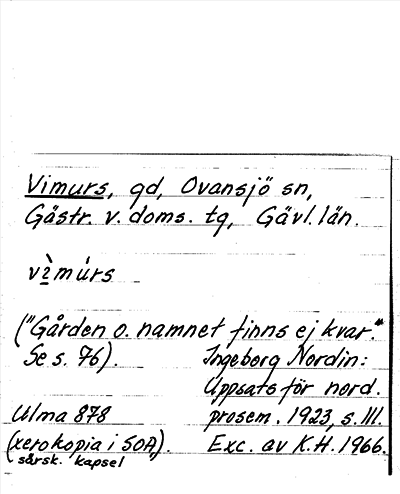 Vimurs, gd, Ovansjö sn,
Gästr. v. doms. tg, Gävl. län.
vìmúrs
("Gården o. namnet finns ej kvar."
Se s. 76). Ingeborg Nordin:
Uppsats för nord.
Ulma 878 prosem. 1923, s. III.
(xerokopia i SOA). Exc. av K.H. 1966.
särsk. kapsel